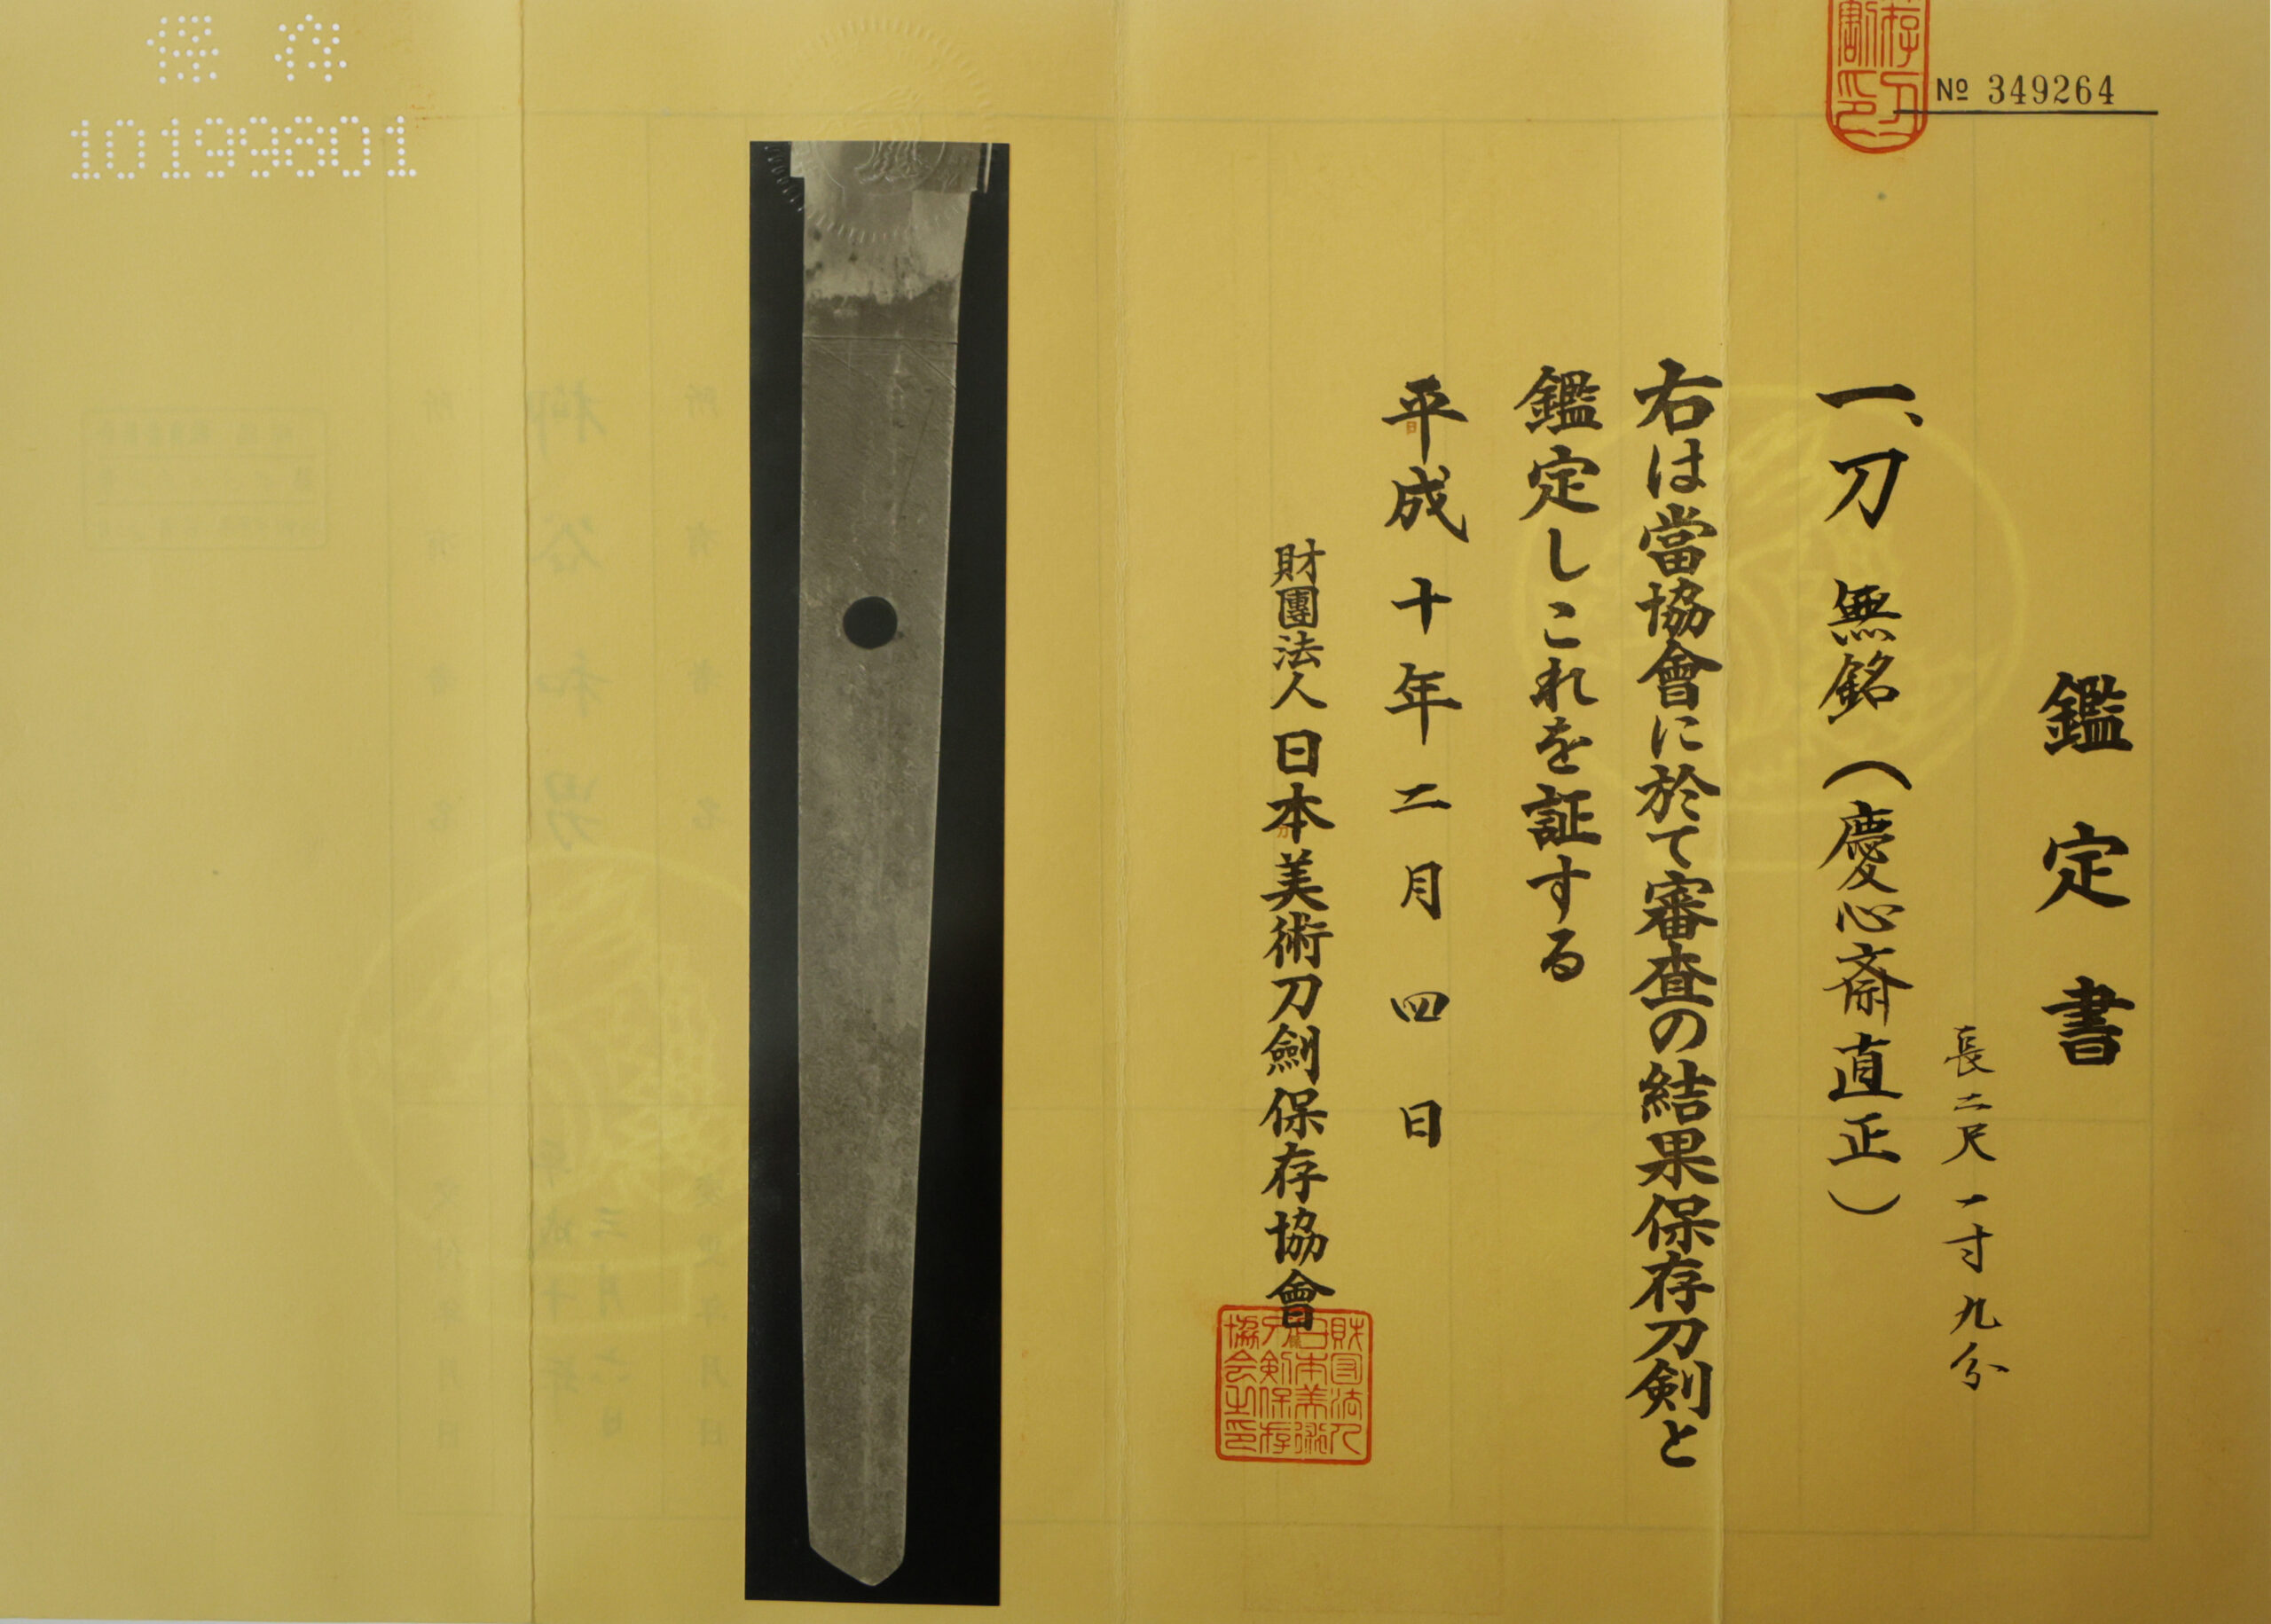 保存
10199801
№ 349264
鑑定書
長二尺一寸九分
一、刀 無銘(慶心斎直正)
右は當協會に於て審査の結果保存刀剣と
鑑定しこれを証する
平成十年二月四日
財團法人日本美術刀劍保存協會
財団法人
日本美術
刀剣保存
協会之印